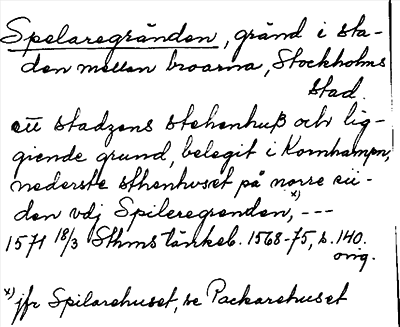 Spelaregränden, gränd i sta-
den mellan broarna, Stockholms
stad.
ett stadzens stehenhuß och lig-
giende grund, belegit i Kornhampn,
nederste sthenhuset på norre sii-
den vdj Spileregrenden, x) ---
1571 18/3 Sthms tänkeb. 1568-75, s. 140.
orig.
x) jfr Spilarehuset, se Packarehuset